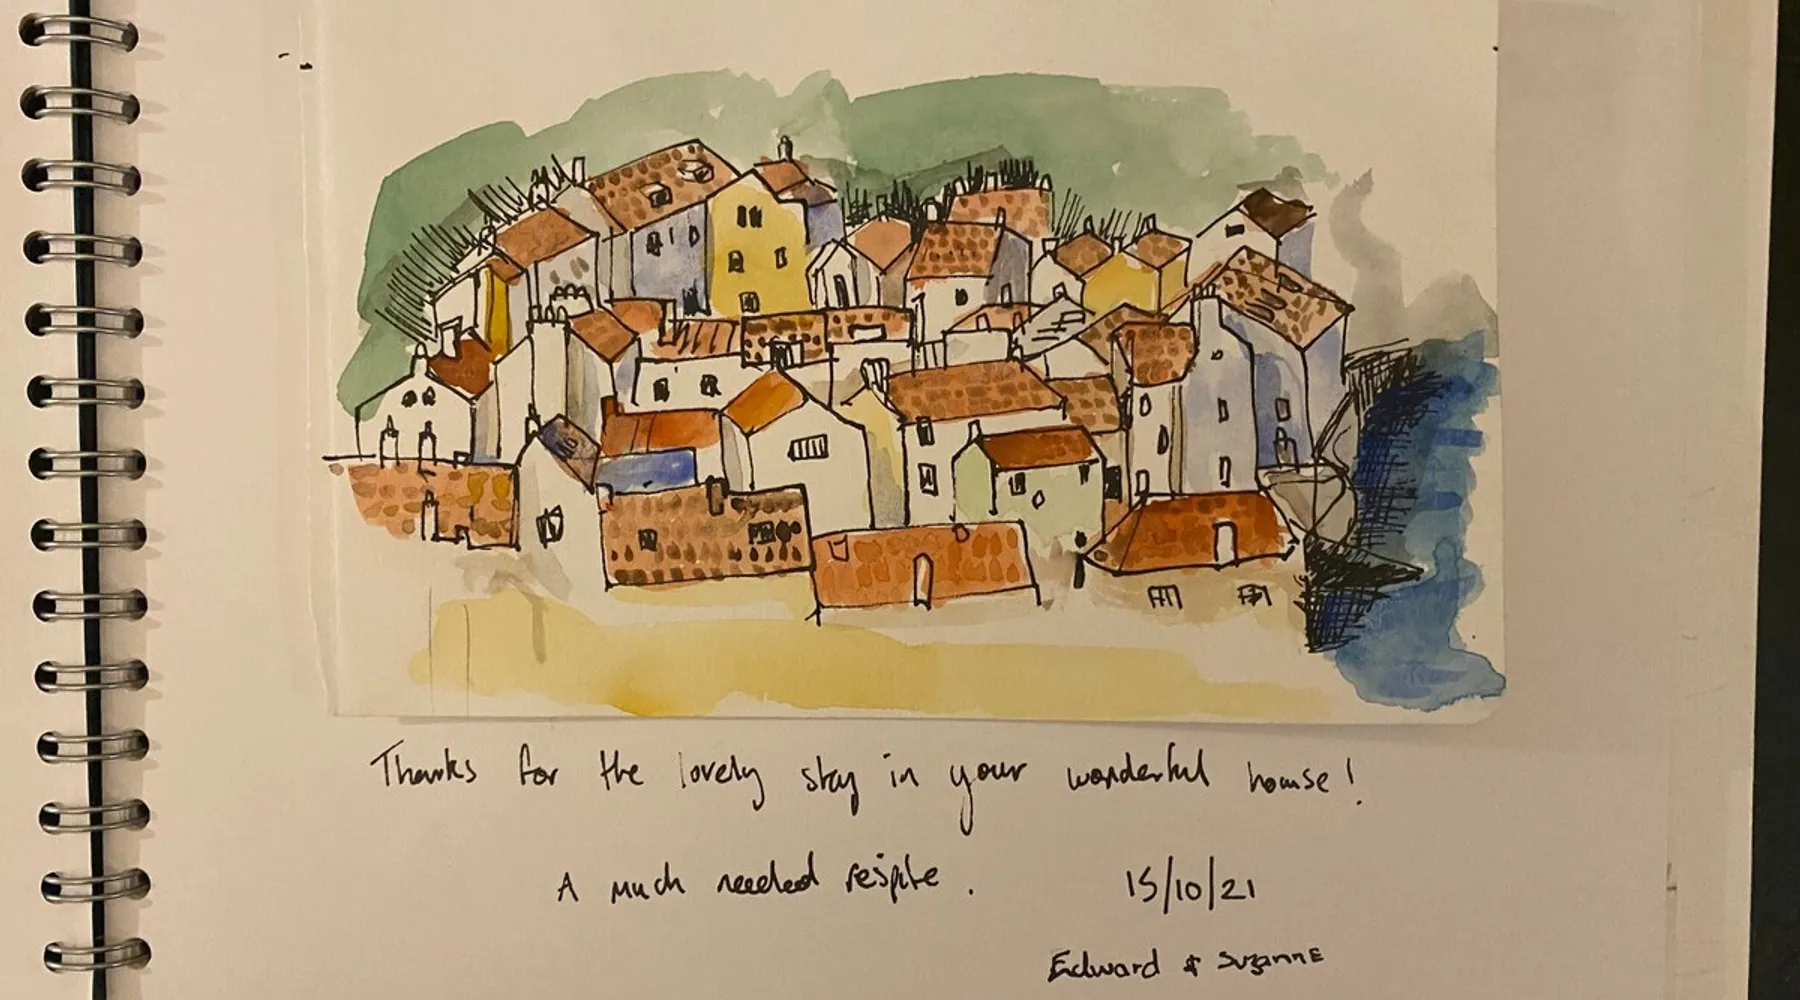 Thanks for the lovely stay in your wonderful house!
A much needed respite.
15/10/21
Edward & Suzanne